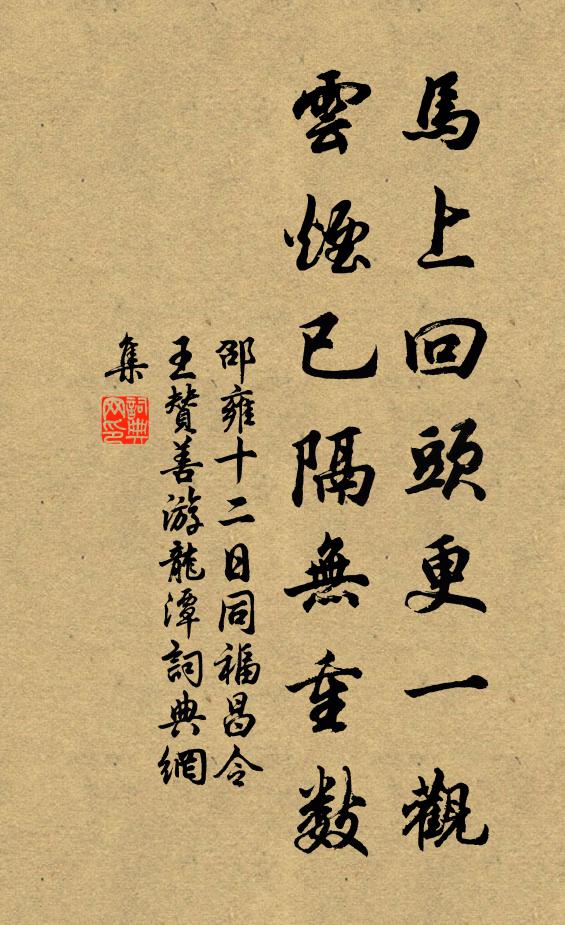 馬上回頭更一觀
雲煙已隔無重數
邵雍十二日同福昌令
王贊善游龍潭詞典網
集
詞典
网印